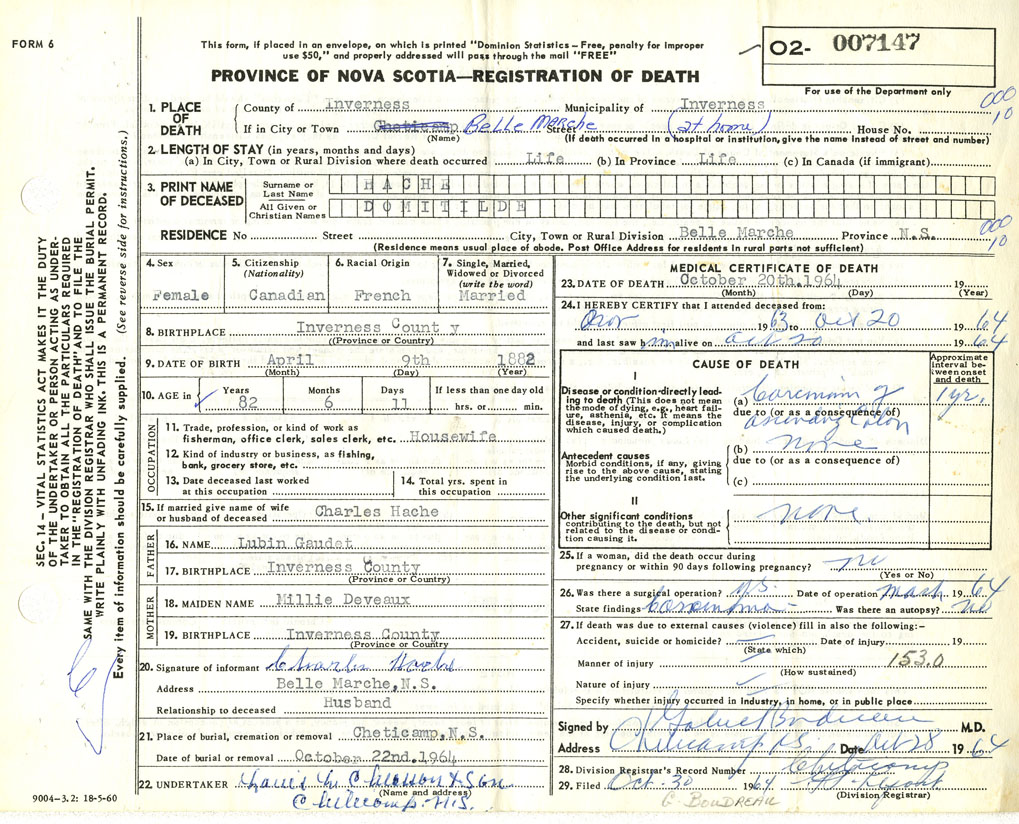 FORM 6
This form, if placed in an envelope, on which is printed "Dominion Statistics – Free, penalty for improper
use $50," and properly addressed will pass through the mail "FREE"
PROVINCE OF NOVA SCOTIA—REGISTRATION OF DEATH
O2- 007147
For use of the Department only
1. PLACE OF DEATH
County of Inverness Municipality of Inverness
000
10
If in City or Town Cheticamp Belle Marche Street (at home) House No.
(Name) (If death occurred in a hospital or institution, give the name instead of street and number)
2. LENGTH OF STAY (in years, months and days)
(a) In City, Town or Rural Division where death occurred Life (b) In Province Life (c) In Canada (if immigrant)
3. PRINT NAME OF DECEASED
Surname or Last Name HACHE
All Given or Christian Names DOMITILDE
RESIDENCE No Street City, Town or Rural Division Belle Marche Province N.S.
000
10
(Residence means usual place of abode. Post Office Address for residents in rural parts not sufficient)
4. Sex
Female
5. Citizenship
(Nationality)
Canadian
6. Racial Origin
French
7. Single, Married,
Widowed or Divorced
(write the word)
Married
8. BIRTHPLACE Inverness County
((Province or Country)
9. DATE OF BIRTH April 9th 1882
(Month) (Day) (Year)
10. AGE in
Years Months Days If less than one day old
82 6 11 hrs. or min.
OCCUPATION
11. Trade, profession, or kind of work as
fisherman, office clerk, sales clerk, etc. Housewife
12. Kind of industry or business, as fishing,
bank, grocery store, etc.
13. Date deceased last worked
at this occupation
14. Total yrs. spent in
this occupation
15. If married give name of wife
or husband of deceased Charles Hache
FATHER
16. NAME Lubin Gaudet
17. BIRTHPLACE Inverness County
(Province or Country)
MOTHER
18. MAIDEN NAME Millie Deveaux
19. BIRTHPLACE Inverness County
(Province or Country)
20. Signature of informant Charles Hache
Address Belle Marche, N.S.
Relationship to deceased Husband
21. Place of burial, cremation or removal Cheticamp, N.S.
Date of burial or removal October 22nd. 1964
22. UNDERTAKER & Son
(Name and address)
Cheticamp N.S.
MEDICAL CERTIFICATE OF DEATH
23. DATE OF DEATH October 20th. 1964 19
(Month) (Day) (Year)
24. I HEREBY CERTIFY that I attended deceased from:
Nov 1963 to Oct 20 1964
and last saw him alive on Oct 20 1964
CAUSE OF DEATH
Approximate
interval be-
tween onset
and death
I
Disease or condition directly lead-
ing to death (This does not mean
the mode of dying, e.g., heart fail-
ure, asthenia, etc. It means the
disease, injury, or complication
which caused death.)
(a) Carcinoma of 1 yr.
due to (or as a consequence of)
ascending Colon
(b) none
Antecedent causes
Morbid conditions, if any, giving
rise to the above cause, stating
the underlying condition last.
due to (or as a consequence of)
(c)
II
Other significant conditions
contributing to the death, but not
related to the disease or condi-
tion causing it.
none
25. If a woman, did the death occur during
pregnancy or within 90 days following pregnancy? no
(Yes or No)
26. Was there a surgical operation? Date of operation March 1964
State findings Carcinoma Was there an autopsy? no
27. If death was due to external causes (violence) fill in also the following:-
Accident, suicide or homicide? Date of injury 19
(State which)
Manner of injury 153.0
(How sustained)
Nature of injury
Specify whether injury occurred in industry, in home, or in public place
Signed by Gabriel Boudreau M.D.
Address Cheticamp N.S. Date Oct 28 1964
28. Division Registrar's Record Number Cheticamp
29. Filed Oct 30 1964
(Division Registrar)
G BOUDREAU
9004–3.2: 18-5-60
SEC. 14 – VITAL STATISTICS ACT MAKES IT THE DUTY
OF THE UNDERTAKER OR PERSON ACTING AS UNDER-
TAKER TO OBTAIN ALL THE PARTICULARS REQUIRED
IN THE "REGISTRATION OF DEATH" AND TO FILE THE
SAME WITH THE DIVISION REGISTRAR WHO SHALL ISSUE THE BURIAL PERMIT.
WRITE PLAINLY WITH UNFADING INK. THIS IS A PERMANENT RECORD.
Every item of information should be carefully supplied. (See reverse side for instructions.)